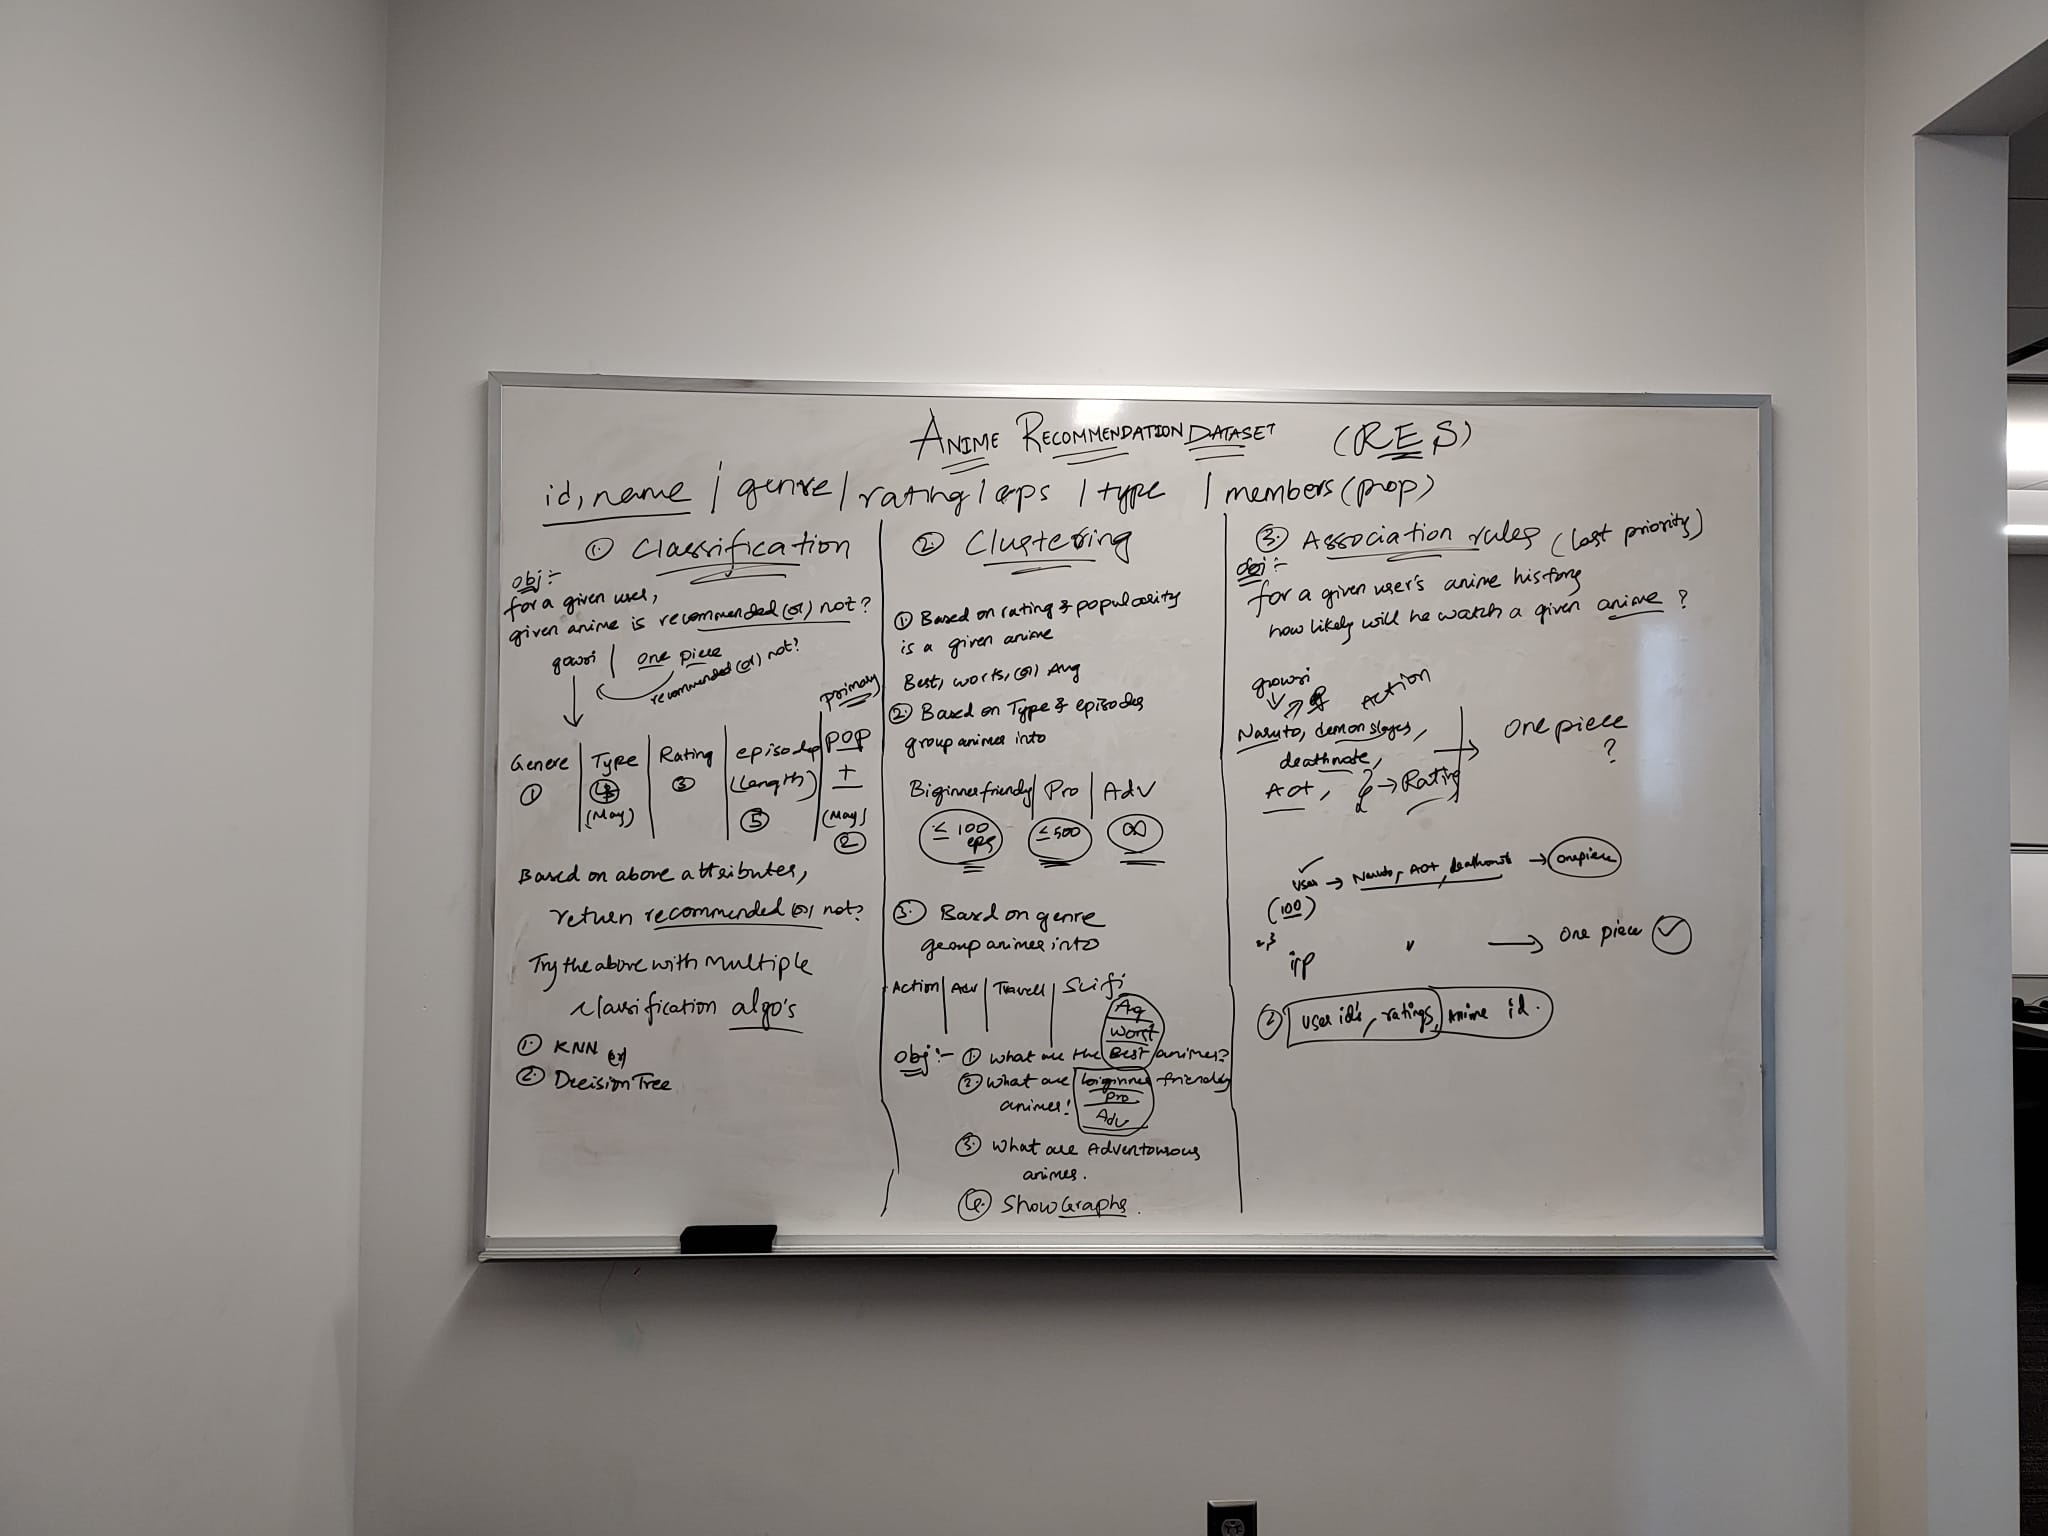 ANIME RECOMMENDATION DATASET (RES)
id, name / genre / rating / eps / type / members (pop)
1. Classification
obj:-
for a given user,
given anime is recommended (or) not?
gowri | one piece
recommended (or) not?
primary
Genere | Type | Rating | episodes | POP
(Length) +
(May) (May)
1 3 5 2
Based on above attributes,
return recommended (or) not?
Try the above with multiple
classification algo's
1. KNN (or)
2. Decision Tree
2. Clustering
1. Based on rating & popularity
is a given anime
Best, worts, (or) Avg
2. Based on Type & episodes
group animes into
Biginner friendly | Pro | Adv
≤ 100 eps ≤ 500 ∞
3. Based on genre
group animes into
Action | Adv | Travell | Scifi
Worst
obj:- 1. What are the Best animes?
2. What are biginner friendly
animes! Pro
Adv
3. What are Adventourous
animes.
4. Show Graphs.
3. Association rules (last priority)
obj:-
for a given user's anime history
how likely will he watch a given anime?
gowri
Action
Naruto, demon slayer,
deathnote, → One piece
?
AOT, } → Rating
user → Naruto, AOT, deathnote → onepiece
(100)
" → One piece ✓
2 user id's, ratings, Anime id.